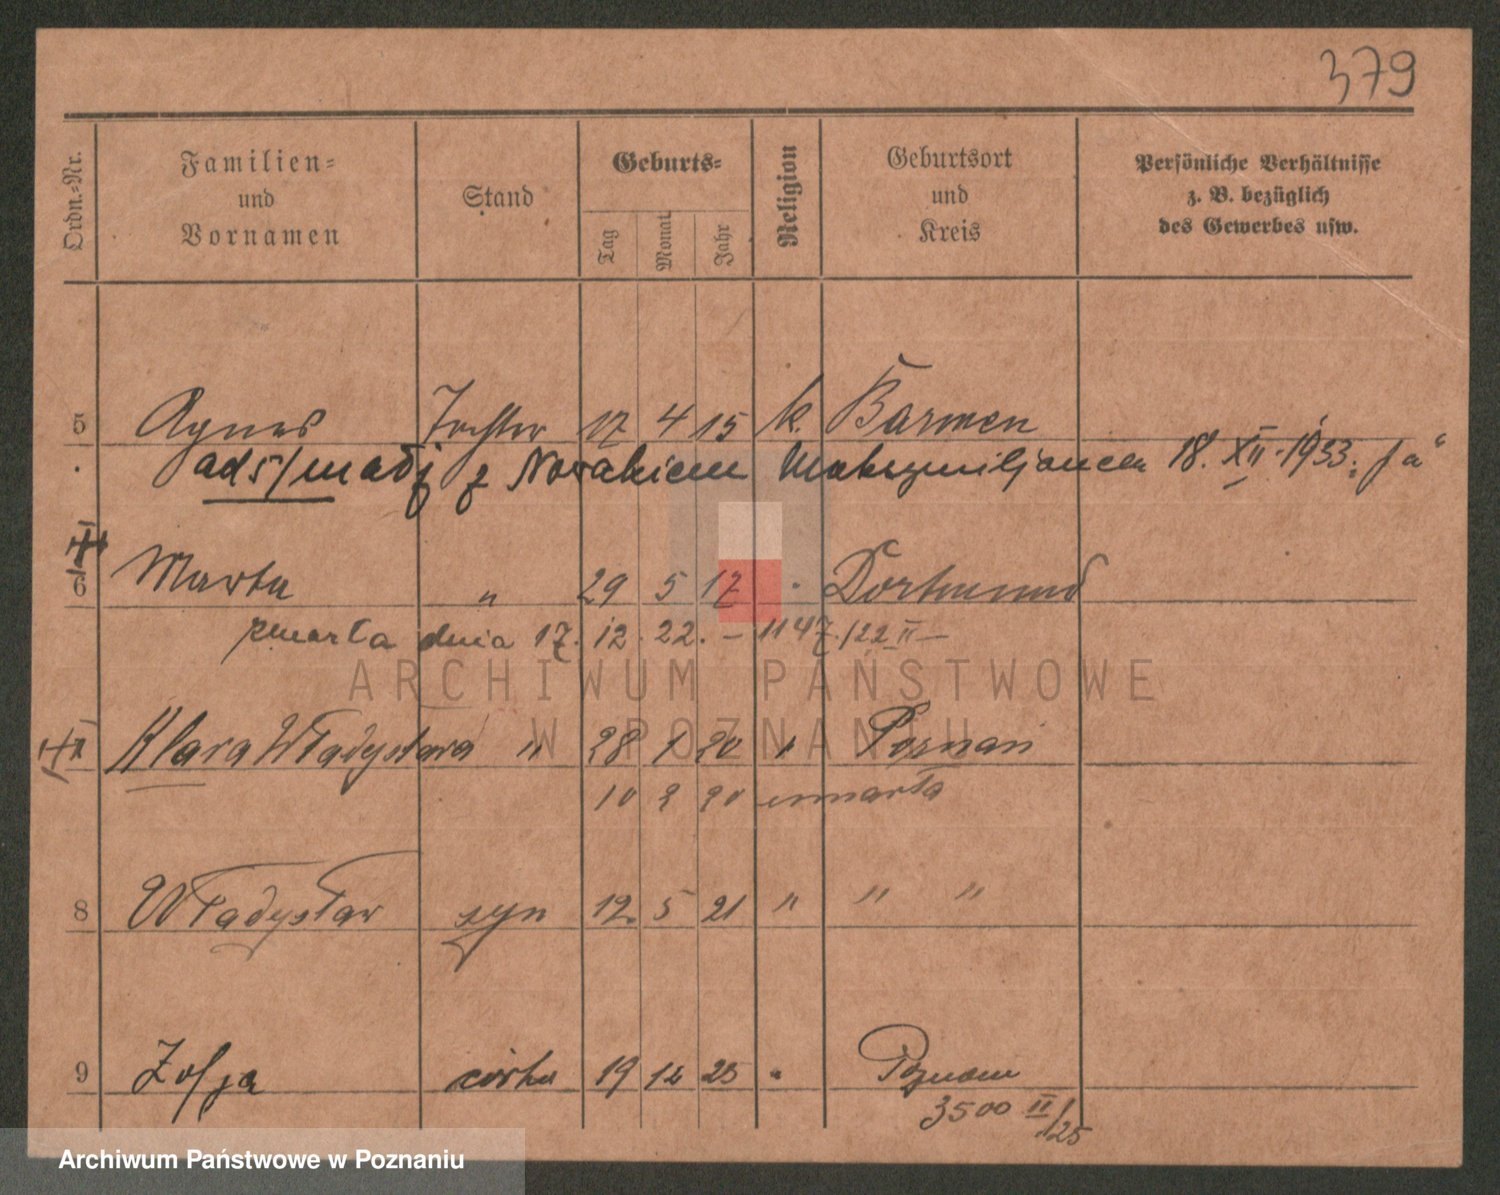 379
Ordn.-Nr.
Familien-
und
Vornamen
Stand
Geburts-
Tag
Monat
Jahr
Religion
Geburtsort
und
Kreis
Persönliche Verhältnisse
z. B. bezüglich
des Gewerbes usw.
5 Agnes Tochter 17 4 15 k. Barmen
z Nowakiem Maksymiljanem 18. XII. 1933.
6 Marta " 29 5 17 " Dortmund
zmarła dnia 17. 12. 22. – 1147/22 II –
Klara Władysława " 28 1 20 " Poznań
10 2 20 zmarła
8 Władysław syn 12. 5 21 " " "
9 Zofja córka 19 12 25 " Poznań
3500 II/25
ARCHIWUM PAŃSTWOWE
W POZNANIU
Archiwum Państwowe w Poznaniu